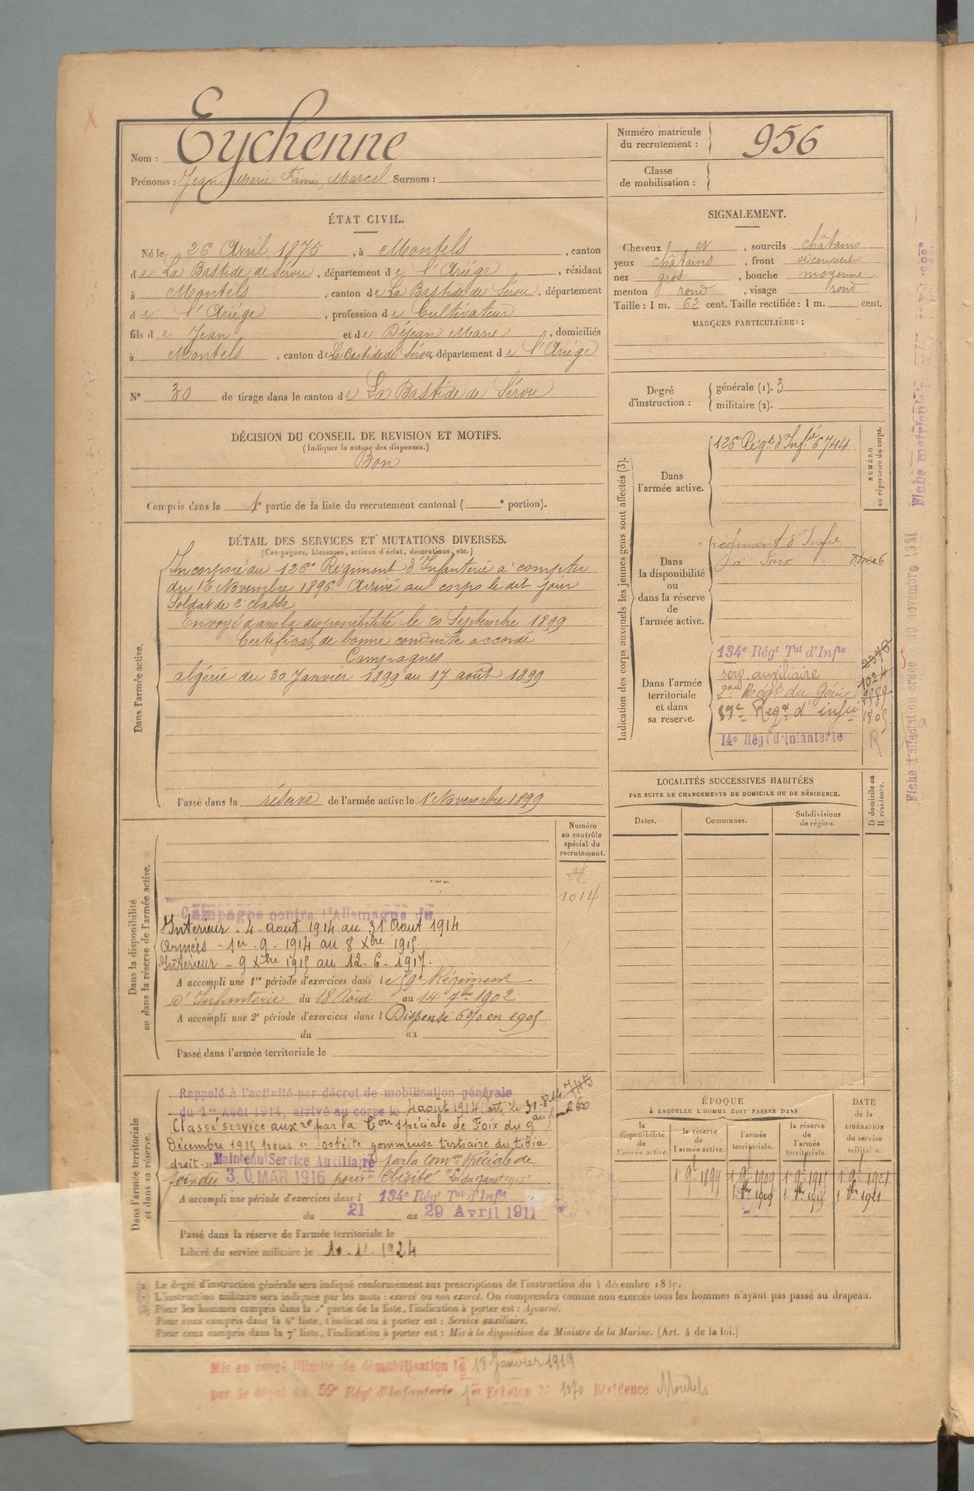 Nom : Eychenne
Prénoms : Jean Marie Firmin Marcel Surnom :
Numéro matricule du recrutement : 956
Classe de mobilisation :
ÉTAT CIVIL.
Né le 26 Avril 1875, à Montels, canton
de La Bastide de Sérou, département de l'Ariège, résidant
à Montels, canton de La Bastide de Sérou, département
de l'Ariège, profession de Cultivateur
fils de Jean et de Déjean Marie, domiciliés
à Montels, canton de La Bastide de Sérou, département de l'Ariége
N° 30 de tirage dans le canton de La Bastide de Sérou
SIGNALEMENT.
Cheveux, sourcils châtains
yeux châtains, front découvert
nez gros, bouche moyenne
menton rond, visage rond
Taille : 1 m. 62 cent. Taille rectifiée : 1 m. cent.
MARQUES PARTICULIÈRES :
Degré d'instruction : générale (1). 3
militaire (2).
DÉCISION DU CONSEIL DE REVISION ET MOTIFS.
(Indiquer la nature des dispenses.)
Bon
Compris dans la 1e partie de la liste du recrutement cantonal ( e portion).
DÉTAIL DES SERVICES ET MUTATIONS DIVERSES.
(Campagnes, blessures, actions d'éclat, décorations, etc.)
Dans l'armée active.
Incorporé au 126e Régiment d'Infanterie à compter
du 16 Novembre 1896. Arrivé au corps le dit jour
Soldat de 2e classe
Envoyé dans la disponibilité le 20 Septembre 1899
Certificat de bonne conduite accordé
Campagnes
algérie du 30 Janvier 1899 au 17 août 1899
Passé dans la réserve de l'armée active le 1er Novembre 1899
Indication des corps auxquels les jeunes gens sont affectés (3).
NUMÉRO au répertoire du corps.
Dans l'armée active.
126e Régt d'Infie 6744
Dans la disponibilité ou dans la réserve de l'armée active.
régiment d'Infie
à Foix
Dans l'armée territoriale et dans sa réserve.
134e Régt Tal d'Infie
serv. auxiliaire 1024
2e Régt du Génie
Régt d'infie
14e Régt d'Infanterie R
LOCALITÉS SUCCESSIVES HABITÉES
PAR SUITE DE CHANGEMENTS DE DOMICILE OU DE RÉSIDENCE.
Dates. Communes. Subdivisions de région. D domicile ou R résidence.
Dans la disponibilité ou dans la réserve de l'armée active.
Numéro au contrôle spécial du recrutement.
1014
Campagne contre l'Allemagne du
Intérieur - 4 aout 1914 au 31 Aout 1914
Armées - 1er. 9. 1914 au 8 Xbre 1915
Intérieur - 9 Xbre 1915 au 12. 6. 1917.
A accompli une 1re période d'exercices dans le 59e Régiment
d'Infanterie du 18 Août au 14 7bre 1902
A accompli une 2e période d'exercices dans l Dispensé 6% en 1905
du au
Passé dans l'armée territoriale le
Dans l'armée territoriale et dans sa réserve.
Rappelé à l'activité par décret de mobilisation générale
du 1er Août 1914, arrivé au corps le 4 août 1914
Classé service auxre par la Con spéciale de Foix du 9
Décembre 1915 pour ostéite gommeuse tertiaire du tibia
droit. Maintenu Service Auxiliaire par la Comon Spéciale de
foix du 30 MAR 1916 pour Obésité
A accompli une période d'exercices dans l 134e Régt Tal d'Infie
du 21 au 29 Avril 1911
Passé dans la réserve de l'armée territoriale le
Libéré du service militaire le
ÉPOQUE
À LAQUELLE L'HOMME DOIT PASSER DANS
la disponibilité de l'armée active. la réserve de l'armée active. l'armée territoriale. la réserve de l'armée territoriale.
DATE de la LIBÉRATION du service militaire.
1 9bre 1899 1 9bre 1909 1 9bre 1915 1 9bre 1921
(1) Le degré d'instruction générale sera indiqué conformément aux prescriptions de l'instruction du 5 décembre
(2) L'instruction militaire sera indiquée par les mots : exercé ou non exercé. On comprendra comme non exercés tous les hommes n'ayant pas passé au drapeau.
(3) Pour les hommes compris dans la 5e partie de la liste, l'indication à porter est : Ajourné.
Pour ceux compris dans la 6e liste, l'indication à porter est : Service auxiliaire.
Pour ceux compris dans la 7e liste, l'indication à porter est : Mis à la disposition du Ministre de la Marine. (Art. 4 de la loi.)
Mis en congé illimité de démobilisation le 18 Janvier 1919
par le dépôt du 59e Rég d'Infanterie 1er Echelon N° 1070 Résidence Montels